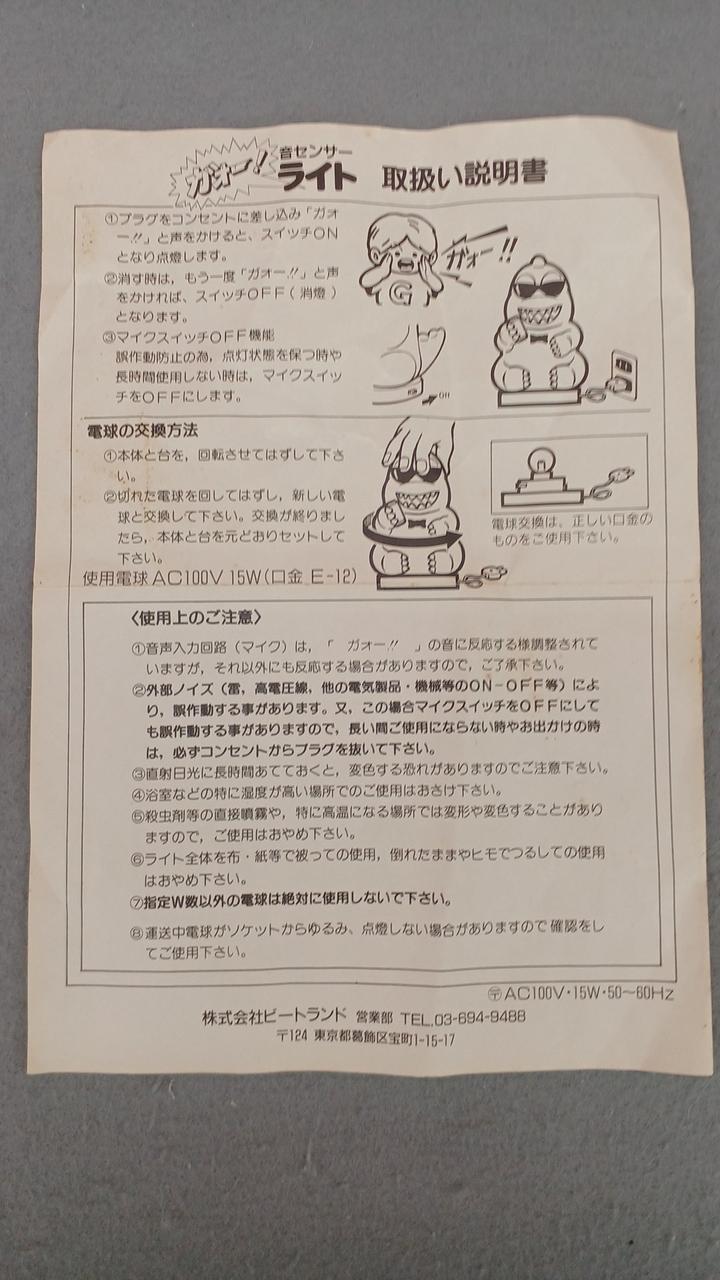 ガォー! 音センサー
ライト 取扱い説明書
①プラグをコンセントに差し込み「ガォ
ー!!」と声をかけると、スイッチON
となり点燈します。
②消す時は，もう一度「ガオー!!」と声
をかければ、スイッチOFF（消燈）
となります。
③マイクスイッチOFF機能
誤作動防止の為，点灯状態を保つ時や
長時間使用しない時は，マイクスイッ
チをOFFにします。
ガォー!!
G
OFF
電球の交換方法
①本体と台を，回転させてはずして下さ
い。
②切れた電球を回してはずし，新しい電
球と交換して下さい。交換が終りまし
たら，本体と台を元どおりセットして
下さい。
使用電球 AC100V 15W(口金 E-12)
電球交換は、正しい口金の
ものをご使用下さい。
〈使用上のご注意〉
①音声入力回路（マイク）は，「 ガォー!! 」の音に反応する様調整されて
いますが，それ以外にも反応する場合がありますので，ご了承下さい。
②外部ノイズ（雷，高電圧線，他の電気製品・機械等のON-OFF等）によ
り，誤作動する事があります。又，この場合マイクスイッチをOFFにして
も誤作動する事がありますので，長い間ご使用にならない時やお出かけの時
は，必ずコンセントからプラグを抜いて下さい。
③直射日光に長時間あてておくと，変色する恐れがありますのでご注意下さい。
④浴室などの特に湿度が高い場所でのご使用はおさけ下さい。
⑤殺虫剤等の直接噴霧や，特に高温になる場所では変形や変色することがあり
ますので，ご使用はおやめ下さい。
⑥ライト全体を布・紙等で被っての使用，倒れたままやヒモでつるしての使用
はおやめ下さい。
⑦指定W数以外の電球は絶対に使用しないで下さい。
⑧運送中電球がソケットからゆるみ、点燈しない場合がありますので確認をし
てご使用下さい。
〶AC100V・15W・50〜60Hz
株式会社ビートランド 営業部 TEL.03-694-9488
〒124 東京都葛飾区宝町1-15-17